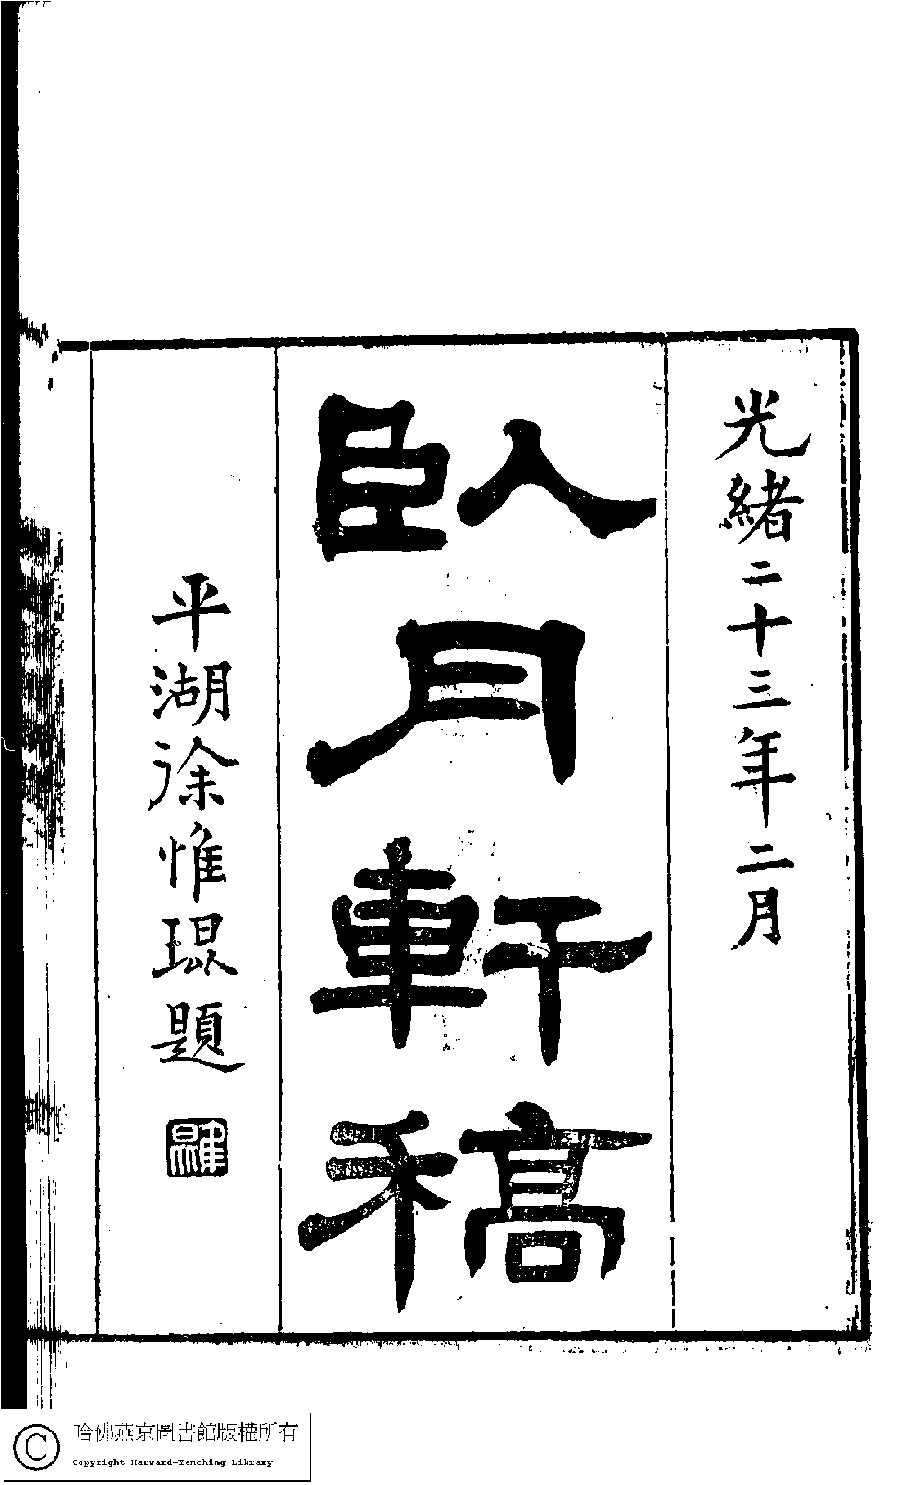 光緒二十三年二月
臥月軒稿
平湖徐惟琨題
哈佛燕京圖書館版權所有
Copyright Harvard-Yenching Library